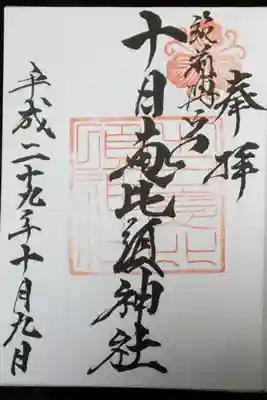 奉拝
筑前博多
十日恵比須神社
平成二十九年十月九日